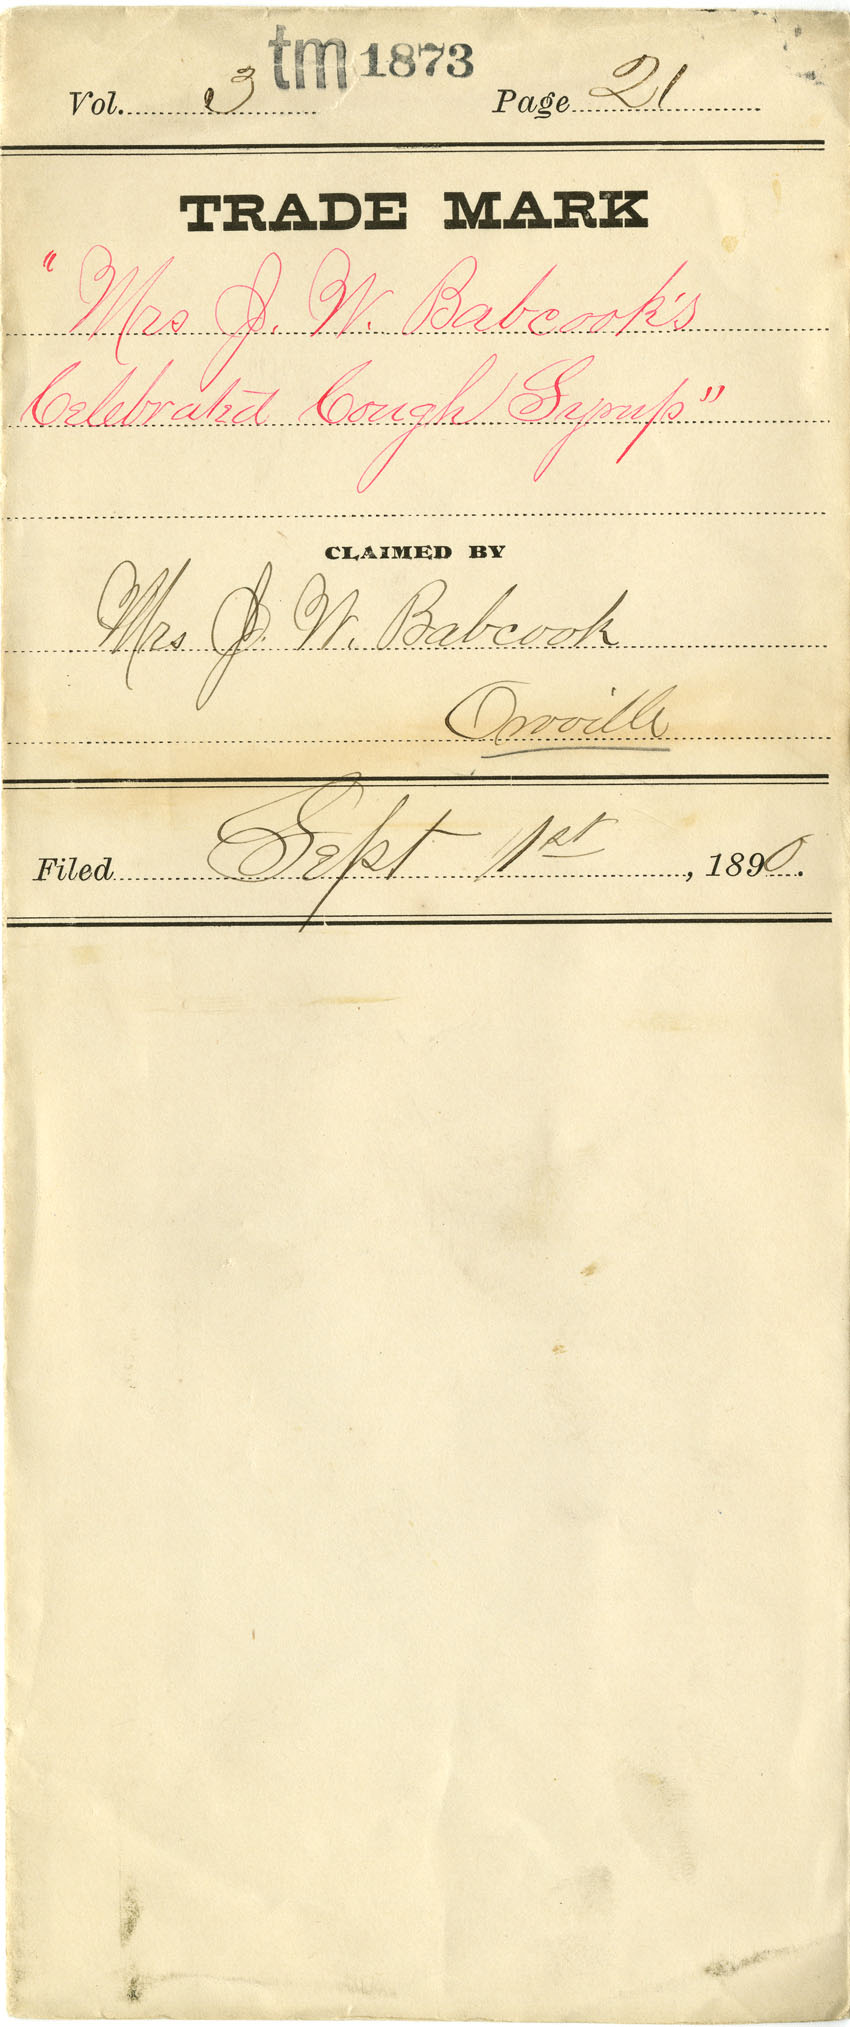 tm 1873
Vol. 3 Page 21
TRADE MARK
"Mrs J. W. Babcook's
Celebrated Cough Syrup"
CLAIMED BY
Mrs J. W. Babcook
Oroville
Filed Sept 1st, 1890.